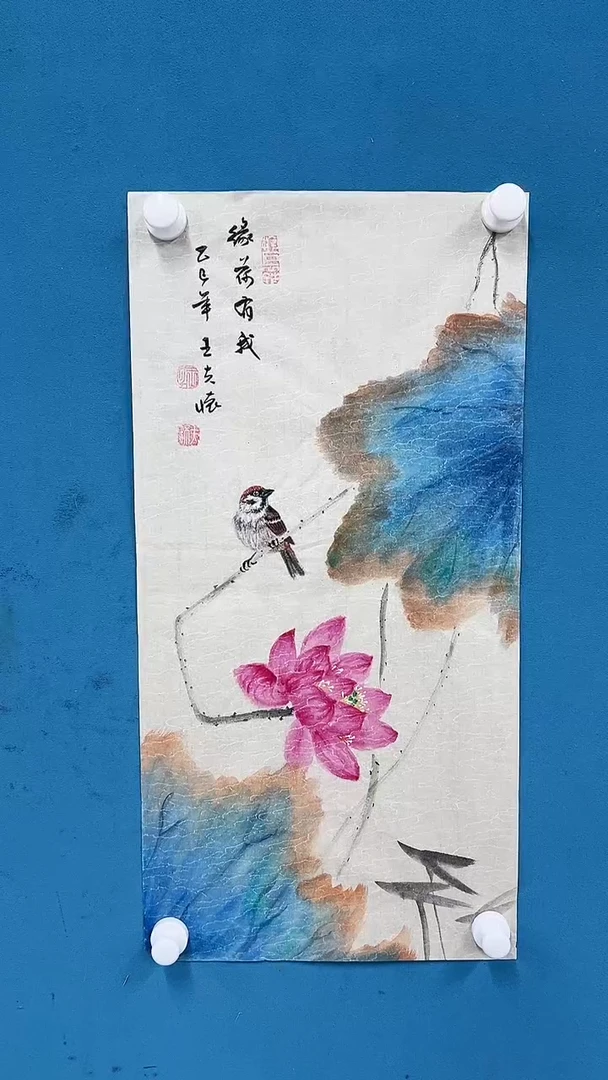 缘荷有我
乙巳年王克怀